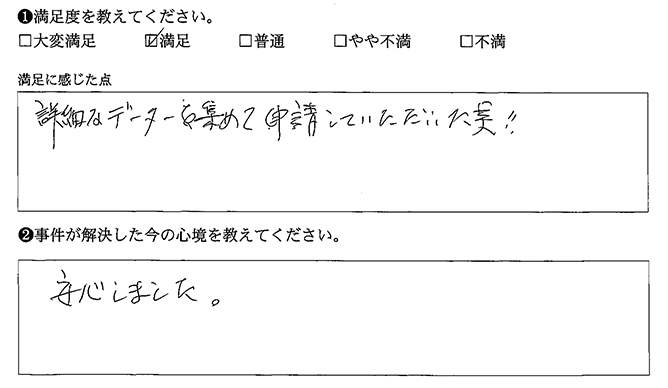 ❶満足度を教えてください。
□大変満足 ☑満足 □普通 □やや不満 □不満
満足に感じた点
詳細なデーターを集めて申請していただいた事!!
❷事件が解決した今の心境を教えてください。
安心しました。